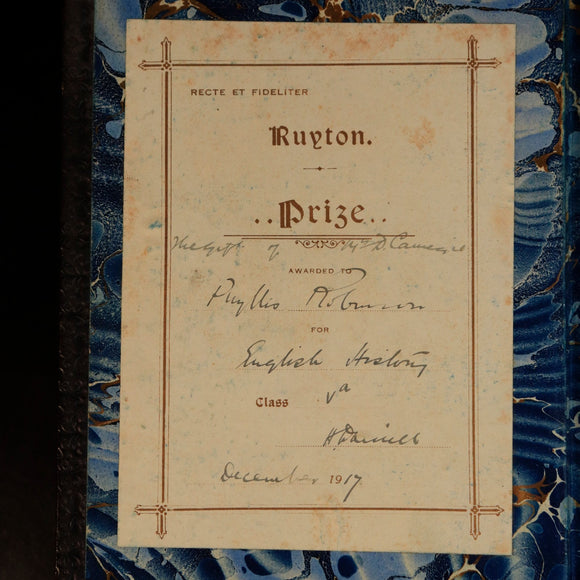 RECTE ET FIDELITER
Ruyton.
..Prize..
The gift of Mrs D. Carnegie
AWARDED TO
Phyllis Robinson
FOR
English History
Class Va
H Daniell
December 1917.